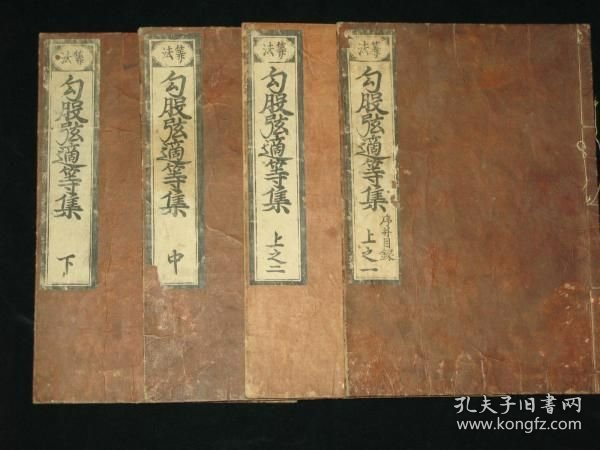 算法
勾股弦適等集
序并目録
上之一
算法
勾股弦適等集
上之二
算法
勾股弦適等集
中
算法
勾股弦適等集
下
孔夫子旧书网
www.kongfz.com